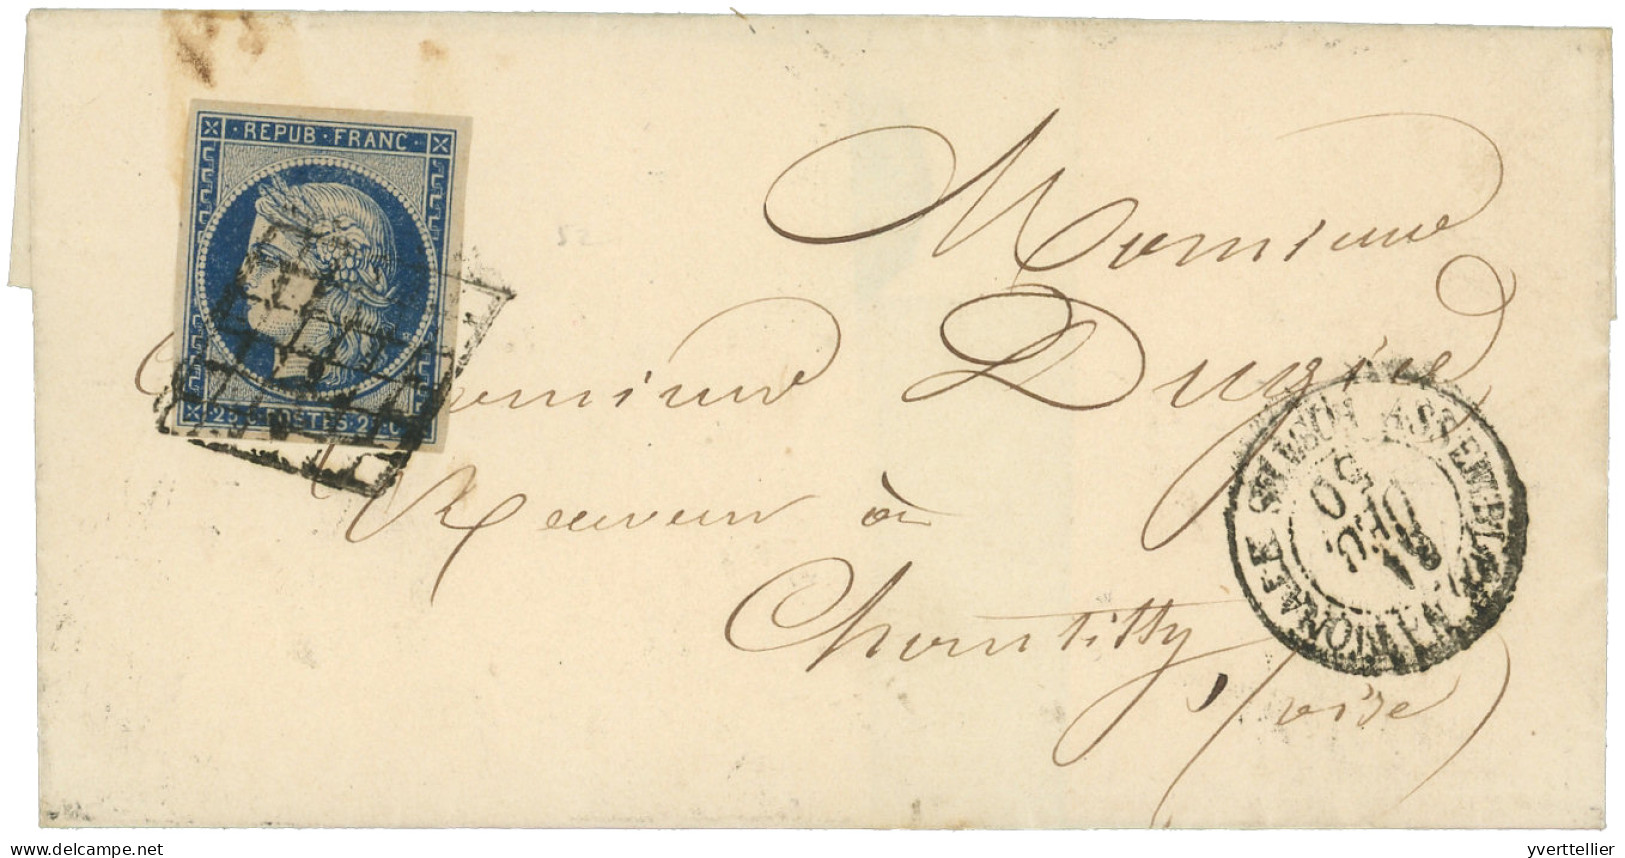 REPUB · FRANC
25 C POSTES 25 C
Monsieur
Monsieur Dugied
Receveur à
Chantilly,
(oise)
ASSEMBLÉE NATIONALE
50
delcampe.com
yverttellier